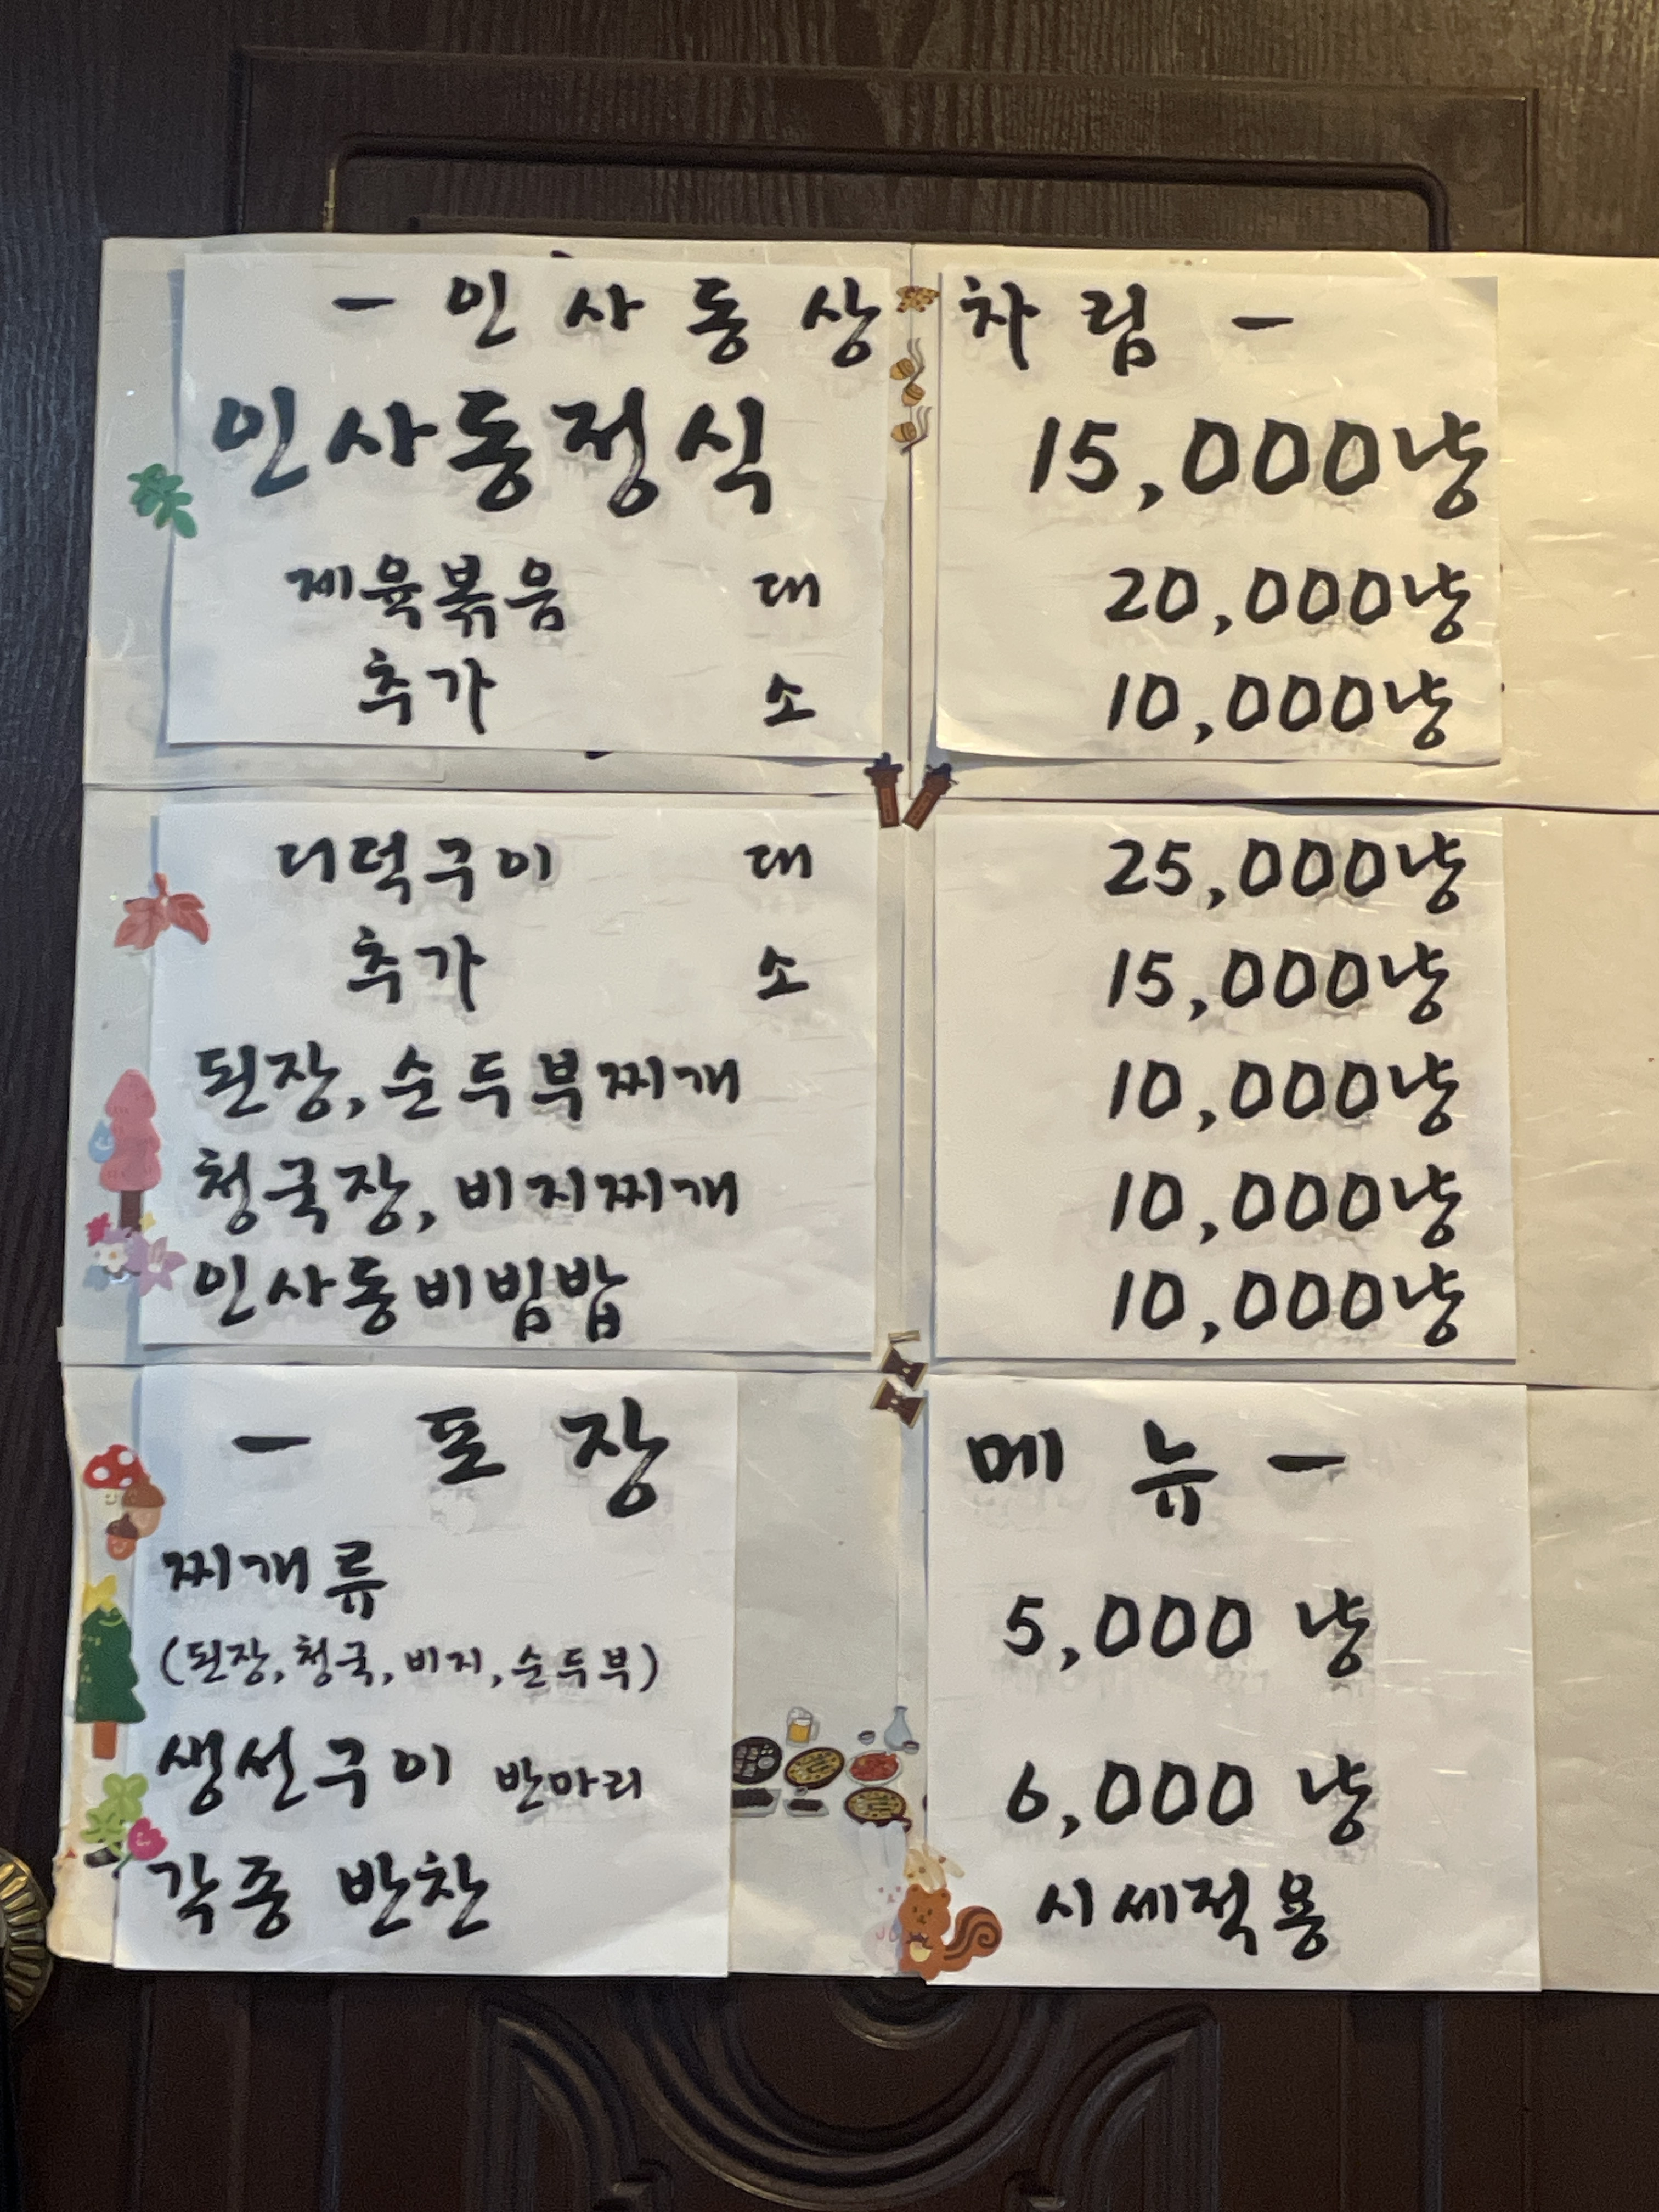 - 인사동상차림 -
인사동정식 15,000냥
제육볶음 대 20,000냥
추가 소 10,000냥
더덕구이 대 25,000냥
추가 소 15,000냥
된장,순두부찌개 10,000냥
청국장,비지찌개 10,000냥
인사동비빔밥 10,000냥
- 포장 메뉴 -
찌개류
(된장,청국,비지,순두부) 5,000 냥
생선구이 반마리 6,000 냥
각종 반찬 시세적용